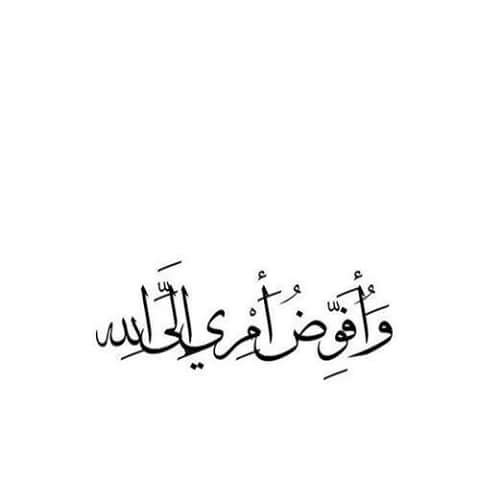 وَأُفَوِّضُ أَمْرِي إِلَى اللهِ